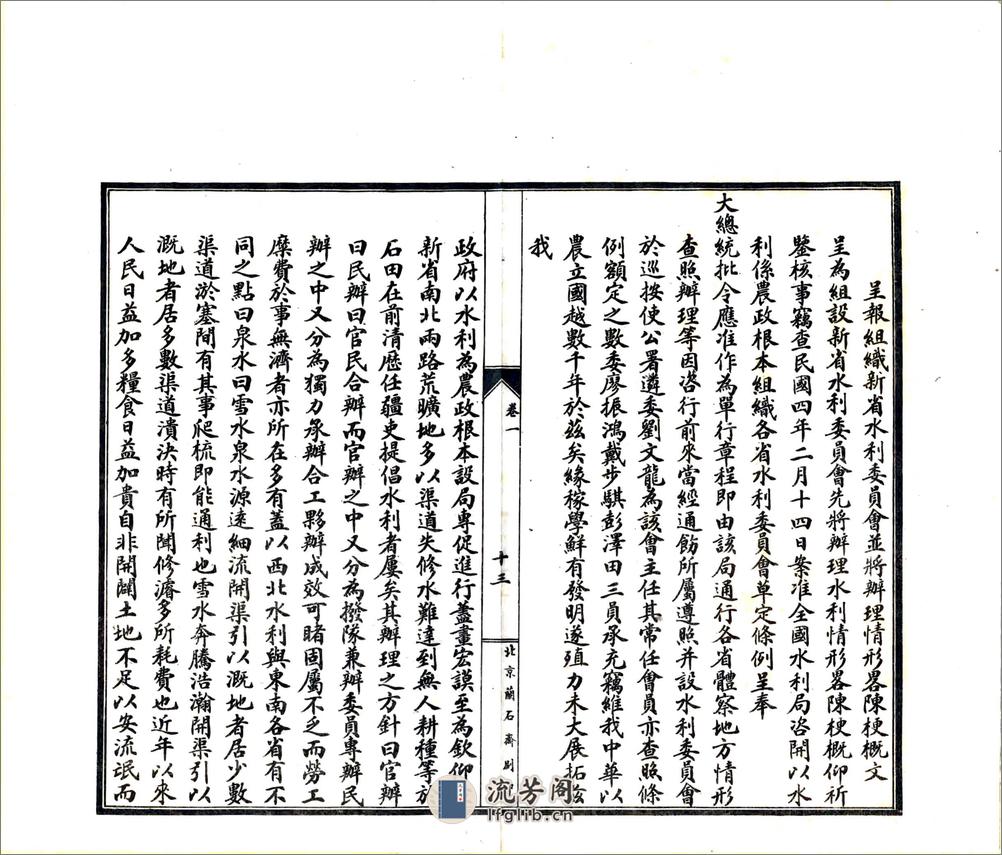 呈報組織新省水利委員會並將辦理情形畧陳梗概文
呈為組設新省水利委員會先將辦理水利情形畧陳梗概仰祈
鑒核事竊查民國四年二月十四日案准全國水利局咨開以水
利係農政根本組織各省水利委員會草定條例呈奉
大總統批令應准作為單行章程即由該局通行各省體察地方情形
查照辦理等因咨行前來當經通飭所屬遵照并設水利委員會
於巡按使公署遴委劉文龍為該會主任其常任會員亦查照條
例額定之數委廖振鴻戴步騏彭澤田三員承充竊維我中華以
農立國越數千年於茲矣緣稼學鮮有發明遂殖力未大展拓茲
我
卷一
十三
北京蘭石齋刷
政府以水利為農政根本設局專促進行藎畫宏謨至為欽仰
新省南北兩路荒曠地多以渠道失修水難達到無人耕種等於
石田在前清歷任疆吏提倡水利者屢矣其辦理之方針曰官辦
曰民辦曰官民合辦而官辦之中又分為撥隊兼辦委員專辦民
辦之中又分為獨力承辦合工夥辦成效可睹固屬不乏而勞工
糜費於事無濟者亦所在多有蓋以西北水利與東南各省有不
同之點曰泉水曰雪水泉水源遠細流開渠引以溉地者居少數
渠道淤塞間有其事爬梳即能通利也雪水奔騰浩瀚開渠引以
溉地者居多數渠道潰決時有所聞修濬多所耗費也近年以來
人民日益加多糧食日益加貴自非開闢土地不足以安流氓而
流芳阁
lfglib.cn